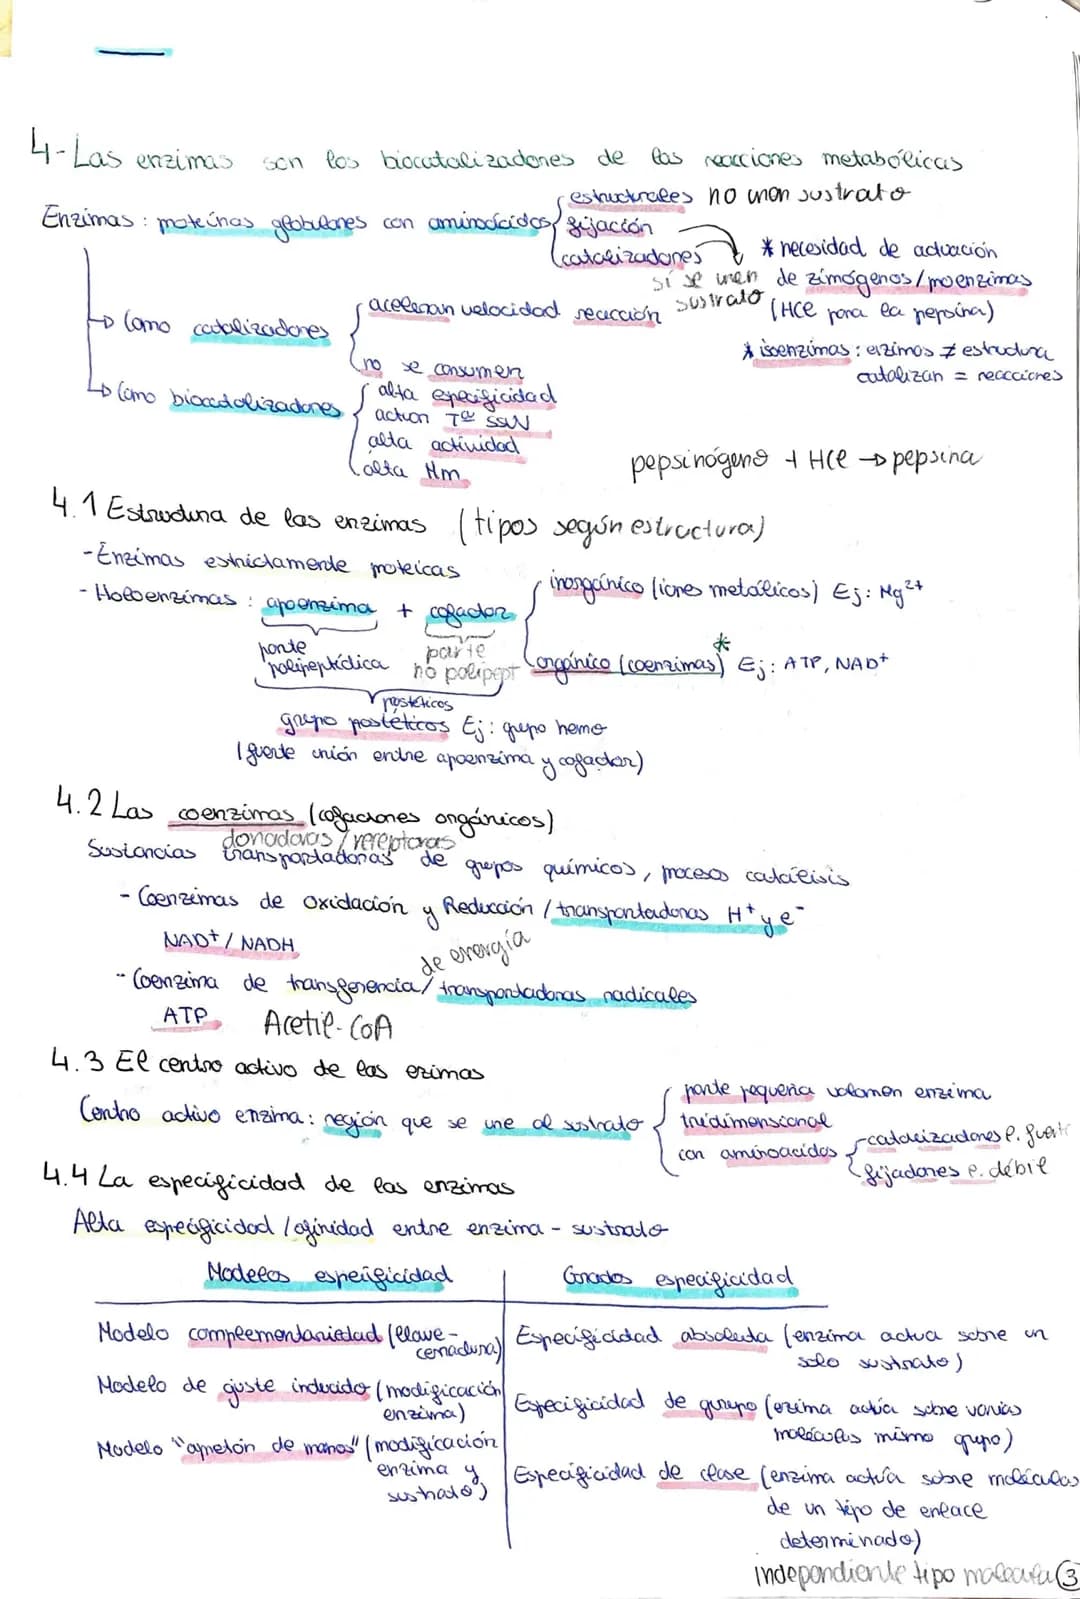 4-Las enzimas son los biocatalizadores de las reacciones metabólicas
estructurales no unen sustrato
Enzimas: proteínas globulares con aminoácidos fijación
catalizadores
sí se unen sustrato
* necesidad de actuación
de zimógenos/proenzimas
(HCl para la pepsina)
* isoenzimas: enzimas ≠ estructura
catalizan = reacciones
→ Como catalizadores
aceleran velocidad reacción
no se consumen
→ Como biocatalizadores
alta especificidad
action Tª
alta actividad
alta Mm
pepsinógeno + HCl → pepsina
4.1 Estructura de las enzimas (tipos según estructura)
-Enzimas estrictamente proteicas
- Holoenzimas: apoenzima + cofactor
inorgánico (iones metálicos) Ej: Mg²⁺
*
orgánico (coenzimas) Ej: ATP, NAD⁺
parte polipeptídica
parte no polipept
prostéticos
grupo postéticos Ej: grupo hemo
(fuerte unión entre apoenzima y cofactor)
4.2 Las coenzimas (cofactores orgánicos)
donadoras/receptoras
Sustancias transportadoras de grupos químicos, procesos catálisis
- Coenzimas de oxidación y Reducción / transportadoras H⁺ y e⁻
NAD⁺/ NADH
de energía
- Coenzima de transferencia/ transportadoras radicales
ATP Acetil-CoA
4.3 El centro activo de las ezimas
Centro activo enzima: región que se une al sustrato
parte pequeña volumen enzima
tridimensional
con aminoácidos
catalizadores e. fuerte
fijadores e. débil
4.4 La especificidad de las enzimas
Alta especificidad/afinidad entre enzima - sustrato
Modelos especificidad
Modelo complementariedad (llave-cerradura)
Modelo de ajuste inducido (modificación
enzima)
Modelo "apretón de manos" (modificación
enzima y
sustrato)
Grados especificidad
Especificidad absoluta (enzima actua sobre un
solo sustrato)
Especificidad de grupo (ezima actúa sobre varias
moléculas mismo grupo)
Especificidad de clase (enzima actúa sobre moléculas
de un tipo de enlace
determinado)
independiente tipo molecula
3